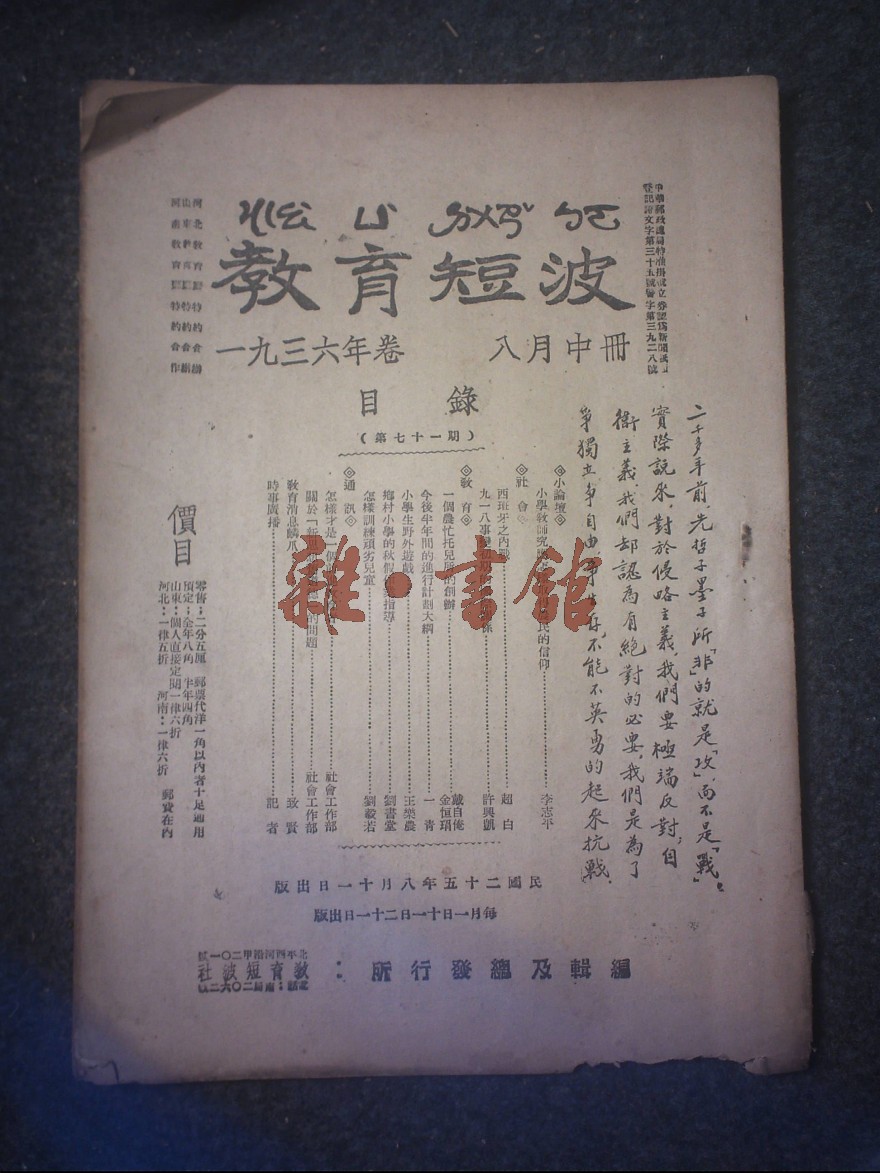 教育短波
一九三六年卷 八月中冊
目錄
(第七十一期)
二千多年前,先哲子墨子所「非」的就是「攻」,而不是「戰」。
實際說來,對於侵略主義,我們要極端反對,自
衛主義,我們却認為有絕對的必要,我們是為了
爭獨立爭自由爭生存,不能不英勇的起來抗戰
◎小論壇◎
小學教師究 民的信仰 李志平
◎社會◎
西班牙之內戰 超白
九一八事變 許興凱
◎教育◎
一個農忙托兒所的創辦 戴自俺 金恒瑣
今後半年間的進行計劃大綱 一青
小學生野外遊戲 王樂農
鄉村小學的秋假 指導 劉書堂
怎樣訓練頑劣兒童 劉毅若
◎通訊◎
怎樣才是一個 社會工作部
關於「新 的問題 社會工作部
教育消息鱗爪 致賢
時事廣播 記者
價目
零售:二分五厘 郵票代洋一角以內者十足通用
預定:全年八角 半年四角
山東:個人直接定閱一律六折
河北:一律五折 河南:一律六折 郵費在內
民國二十五年八月十一日出版
每月一日十一日二十一日出版
編輯及總發行所:
教育短波社
雜·書館